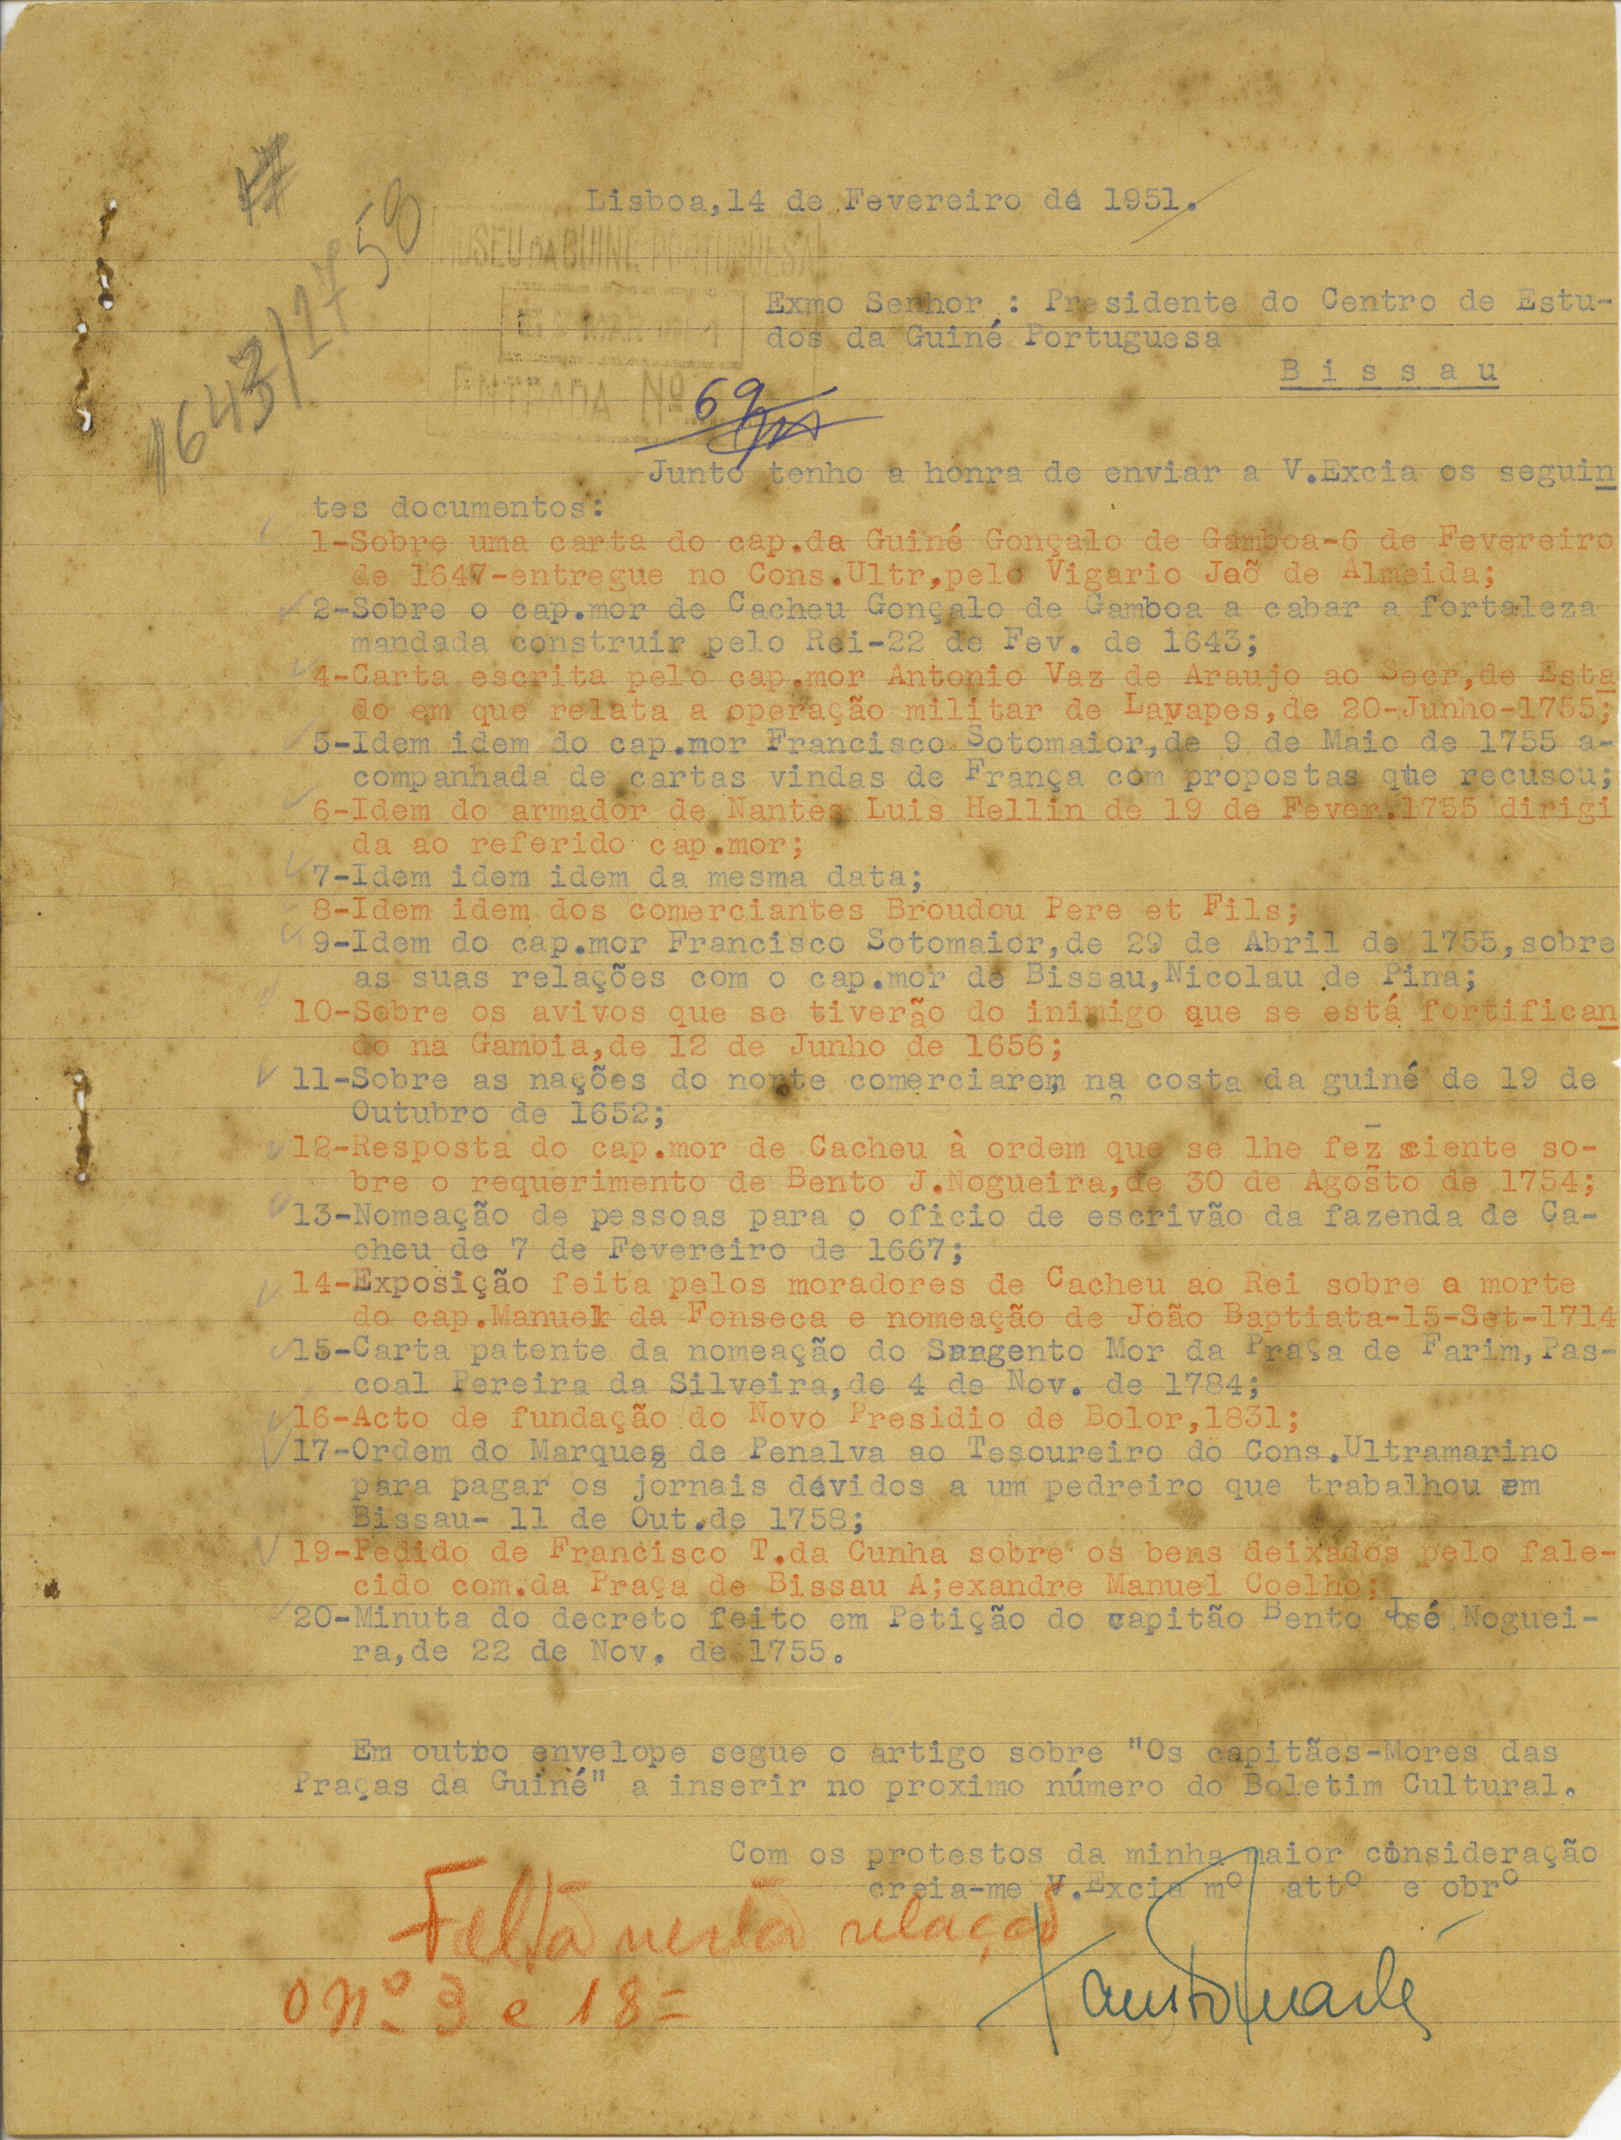 1643/1758
Lisboa,14 de Fevereiro de 1951.
MUSEU DA GUINÉ PORTUGUESA
Exmo Senhor : Presidente do Centro de Estu-
dos da Guiné Portuguesa
Bissau
ENTRADA Nº 69
Junto tenho a honra de enviar a V.Excia os seguin
tes documentos:
1-Sobre uma carta do cap.da Guiné Gonçalo de Gamboa-6 de Fevereiro
de 1647-entregue no Cons.Ultr,pelo Vigario Joaõ de Almeida;
2-Sobre o cap.mor de Cacheu Gonçalo de Gamboa a cabar a fortaleza
mandada construir pelo Rei-22 de Fev. de 1643;
4-Carta escrita pelo cap.mor Antonio Vaz de Araujo ao Secr,de Esta
do em que relata a operação militar de Layapes,de 20-Junho-1755;
5-Idem idem do cap.mor Francisco Sotomaior,de 9 de Maio de 1755 a-
companhada de cartas vindas de França com propostas que recusou;
6-Idem do armador de Nantes Luis Hellin de 19 de Fever.1755 dirigi
da ao referido cap.mor;
7-Idem idem idem da mesma data;
8-Idem idem dos comerciantes Broudou Pere et Fils;
9-Idem do cap.mor Francisco Sotomaior,de 29 de Abril de 1755,sobre
as suas relações com o cap.mor de Bissau,Nicolau de Pina;
10-Sobre os avivos que se tiverão do inimigo que se está fortifican
do na Gambia,de 12 de Junho de 1656;
11-Sobre as nações do norte comerciarem na costa da guiné de 19 de
Outubro de 1652;
12-Resposta do cap.mor de Cacheu à ordem que se lhe fez sciente so-
bre o requerimento de Bento J.Nogueira,de 30 de Agosto de 1754;
13-Nomeação de pessoas para o oficio de escrivão da fazenda de Ca-
cheu de 7 de Fevereiro de 1667;
14-Exposição feita pelos moradores de Cacheu ao Rei sobre a morte
do cap.Manuel da Fonseca e nomeação de João Baptiata-15-Set-1714
15-Carta patente da nomeação do Sargento Mor da Praça de Farim,Pas-
coal Pereira da Silveira,de 4 de Nov. de 1784;
16-Acto de fundação do Novo Presidio de Bolor,1831;
17-Ordem do Marques de Penalva ao Tesoureiro do Cons.Ultramarino
para pagar os jornais dévidos a um pedreiro que trabalhou em
Bissau- 11 de Out.de 1758;
19-Pedido de Francisco T.da Cunha sobre os bens deixados pelo fale-
cido com.da Praça de Bissau A;exandre Manuel Coelho;
20-Minuta do decreto feito em Petição do capitão Bento José Noguei-
ra,de 22 de Nov. de 1755.
Em outro envelope segue o artigo sobre "Os capitães-Mores das
Praças da Guiné" a inserir no proximo número do Boletim Cultural.
Com os protestos da minha maior consideração
creia-me V.Excia mº attº e obrº
Falta nesta relação
o nº 3 e 18=
Fausto Duarte